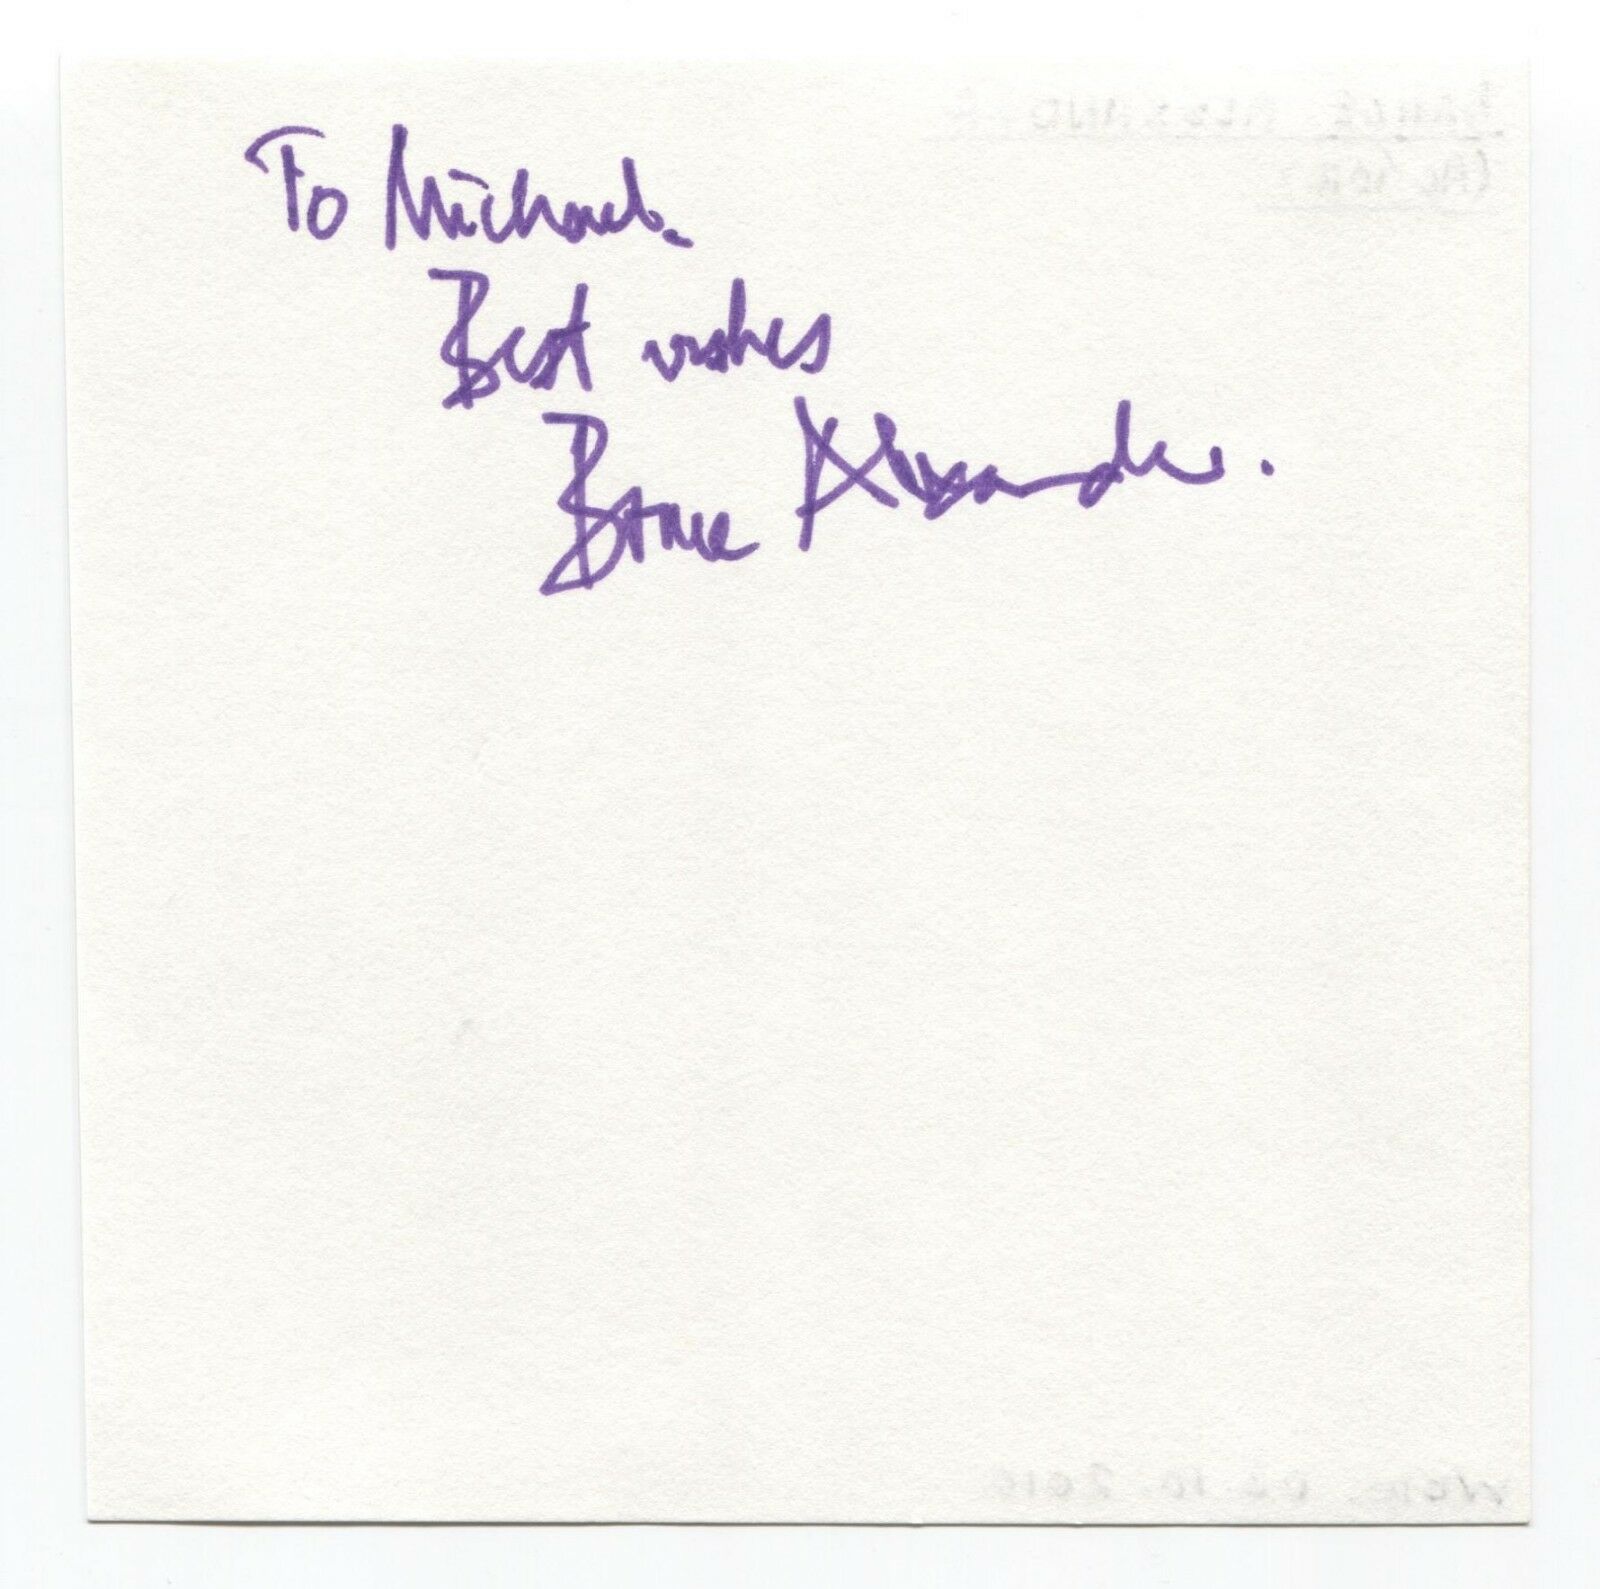 To Michael.
Best wishes
Bruce Alexander.